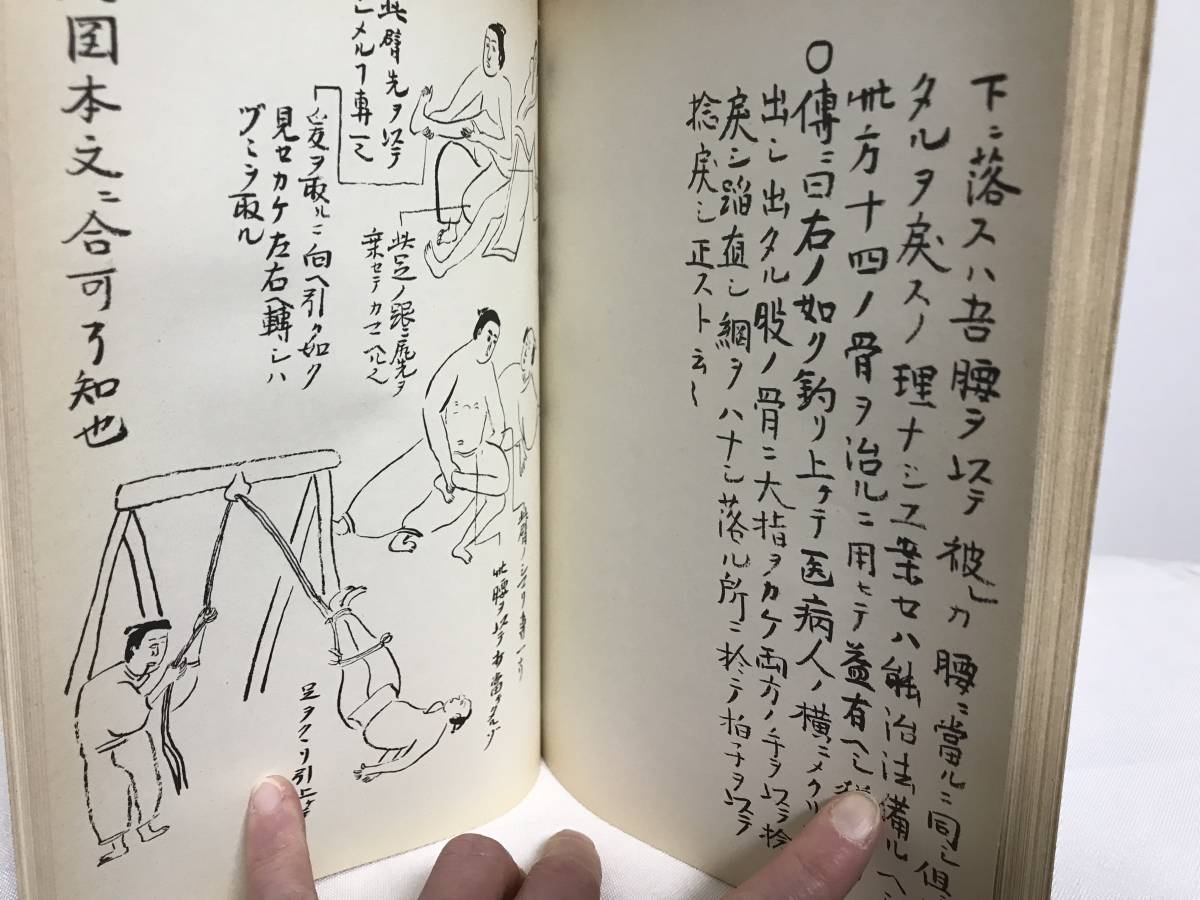 下ニ落スハ吾腰ヲ以テ彼レカ腰ニ當ルニ同シ但
タルヲ戻スノ理ナシ工案セハ能治法備ルヘシ
此方十四ノ骨ヲ治ルニ用ヒテ益有ヘシ
〇傳ニ曰右ノ如ク釣リ上ケテ医病人ノ横ニメクリ
出シ出タル股ノ骨ニ大指ヲカケ両方ノ手ヲ以テ捻
戻シ蹈直シ綱ヲハナシ落ル所ニ於テ拍子ヲ以テ
捻戻シ正スト云々
此臂先ヲ以テ
シメルヿ専一也
ヲ取ルニ向ヘ引ク如ク
見セカケ左右ヘ轉シハ
ヅミヲ取ル
此足ノ跟ニ尻先ヲ
乗セテカマヘル
此臂ノシマリ専一ナリ
此腰ヲ以テ
足ヲククリ引上ケ
図本文ニ合可ク知也